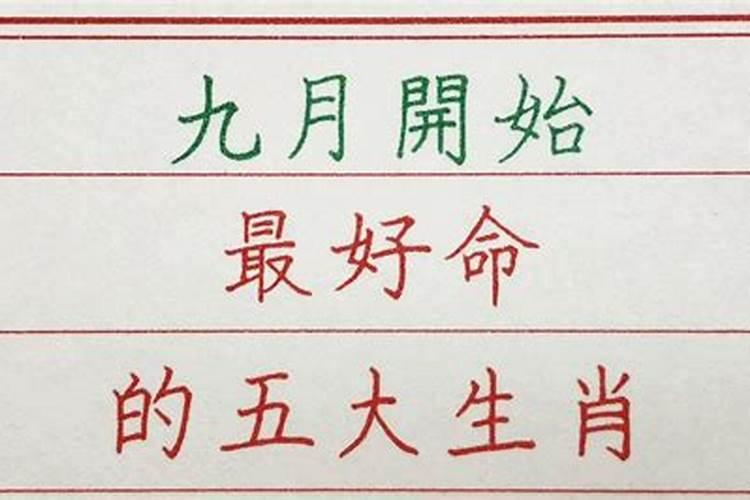 九月開始
最好命
的五大生肖